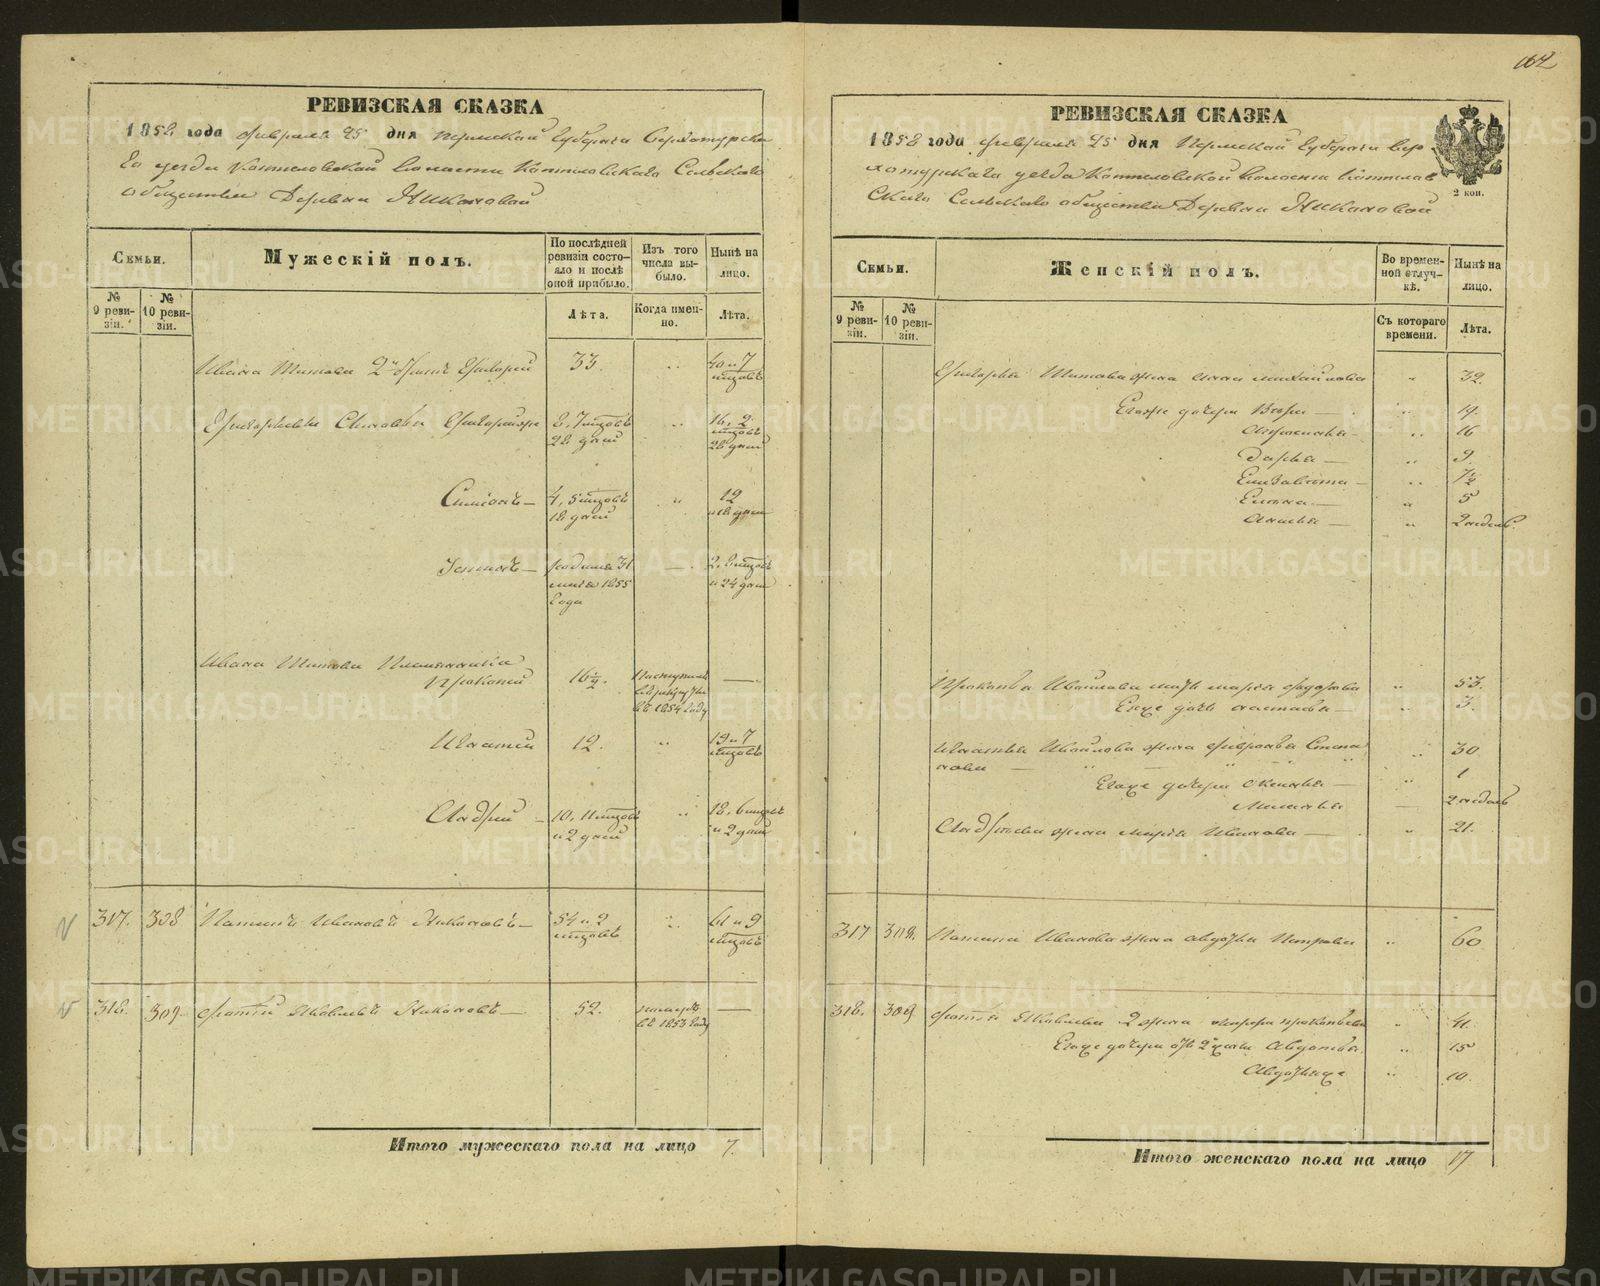 162
РЕВИЗСКАЯ СКАЗКА
1858 года февраля 25 дня Пермской Губернии Верхотурска
го уезда Коптеловской волости Коптеловскаго Сельскаго
общества Деревни Никоновой
Семьи.
Мужескій полъ.
По послѣдней ревизіи состояло и послѣ оной прибыло.
Изъ того числа выбыло.
Нынѣ на лицо.
№ 9 ревизіи.
№ 10 ревизіи.
Лѣта.
Когда именно.
Лѣта.
Ивана Титова 2й братъ Григорій 33. " 40 и 7 мцовъ
Григорьевы Сыновья 8, 7 мцовъ 28 дней " 16, 2 мцовъ 28 дней
Симіонъ — 4, 5 мцовъ 18 дней " 12 и 18 дней
родился 31 маія 1855 года — 2, 8 мцовъ и 24 дня
Ивана Титова Племянники
Прокопей 16½. Поступилъ в рекруты въ 1854 году —
Игнатей 12. " 19 и 7 мцовъ
Андрей — 10, 11 мцовъ и 2 дней " 18, 6 мцовъ и 2 дней
317. 308 Иванов Никоновъ — 54 и 2 мцовъ " 61 и 9 мцовъ
318. 309 Фотей Яковлевъ Никоновъ — 52. умеръ въ 1853 году —
Итого мужескаго пола на лицо 7.
РЕВИЗСКАЯ СКАЗКА
1858 года февраля 25 дня Пермской Губернии Вер
хотурскаго уезда Коптеловской волости Коптелов
скаго Сельскаго общества Деревни Никоновой
2 коп.
Семьи.
Женскій полъ.
Во временной отлучкѣ.
Нынѣ на лицо.
№ 9 ревизіи.
№ 10 ревизіи.
Съ котораго времени.
Лѣта.
Григорья Титова жена Анна Михайлова " 32.
Егоже дочери — " 19.
— " 16
Дарья — " 9.
Елизавета — " 7½
Елена — " 5
— " 2 недель.
Прокопья мать Марья Федорова " 53.
Егоже дочь — " 3.
Игнатья жена Февронья Степа
нова — " 30
Егоже дочери — " 1
— 2 недель
Андреева жена Марья Иванова — " 21.
317 308. Иванова жена Авдотья Петрова " 60
318. 309 Фотея Яковлева 2 жена Прокопьева " 41.
Егоже дочери отъ 2 жены " 15
Авдотья " 10.
Итого женскаго пола на лицо 17
METRIKI.GASO-URAL.RU